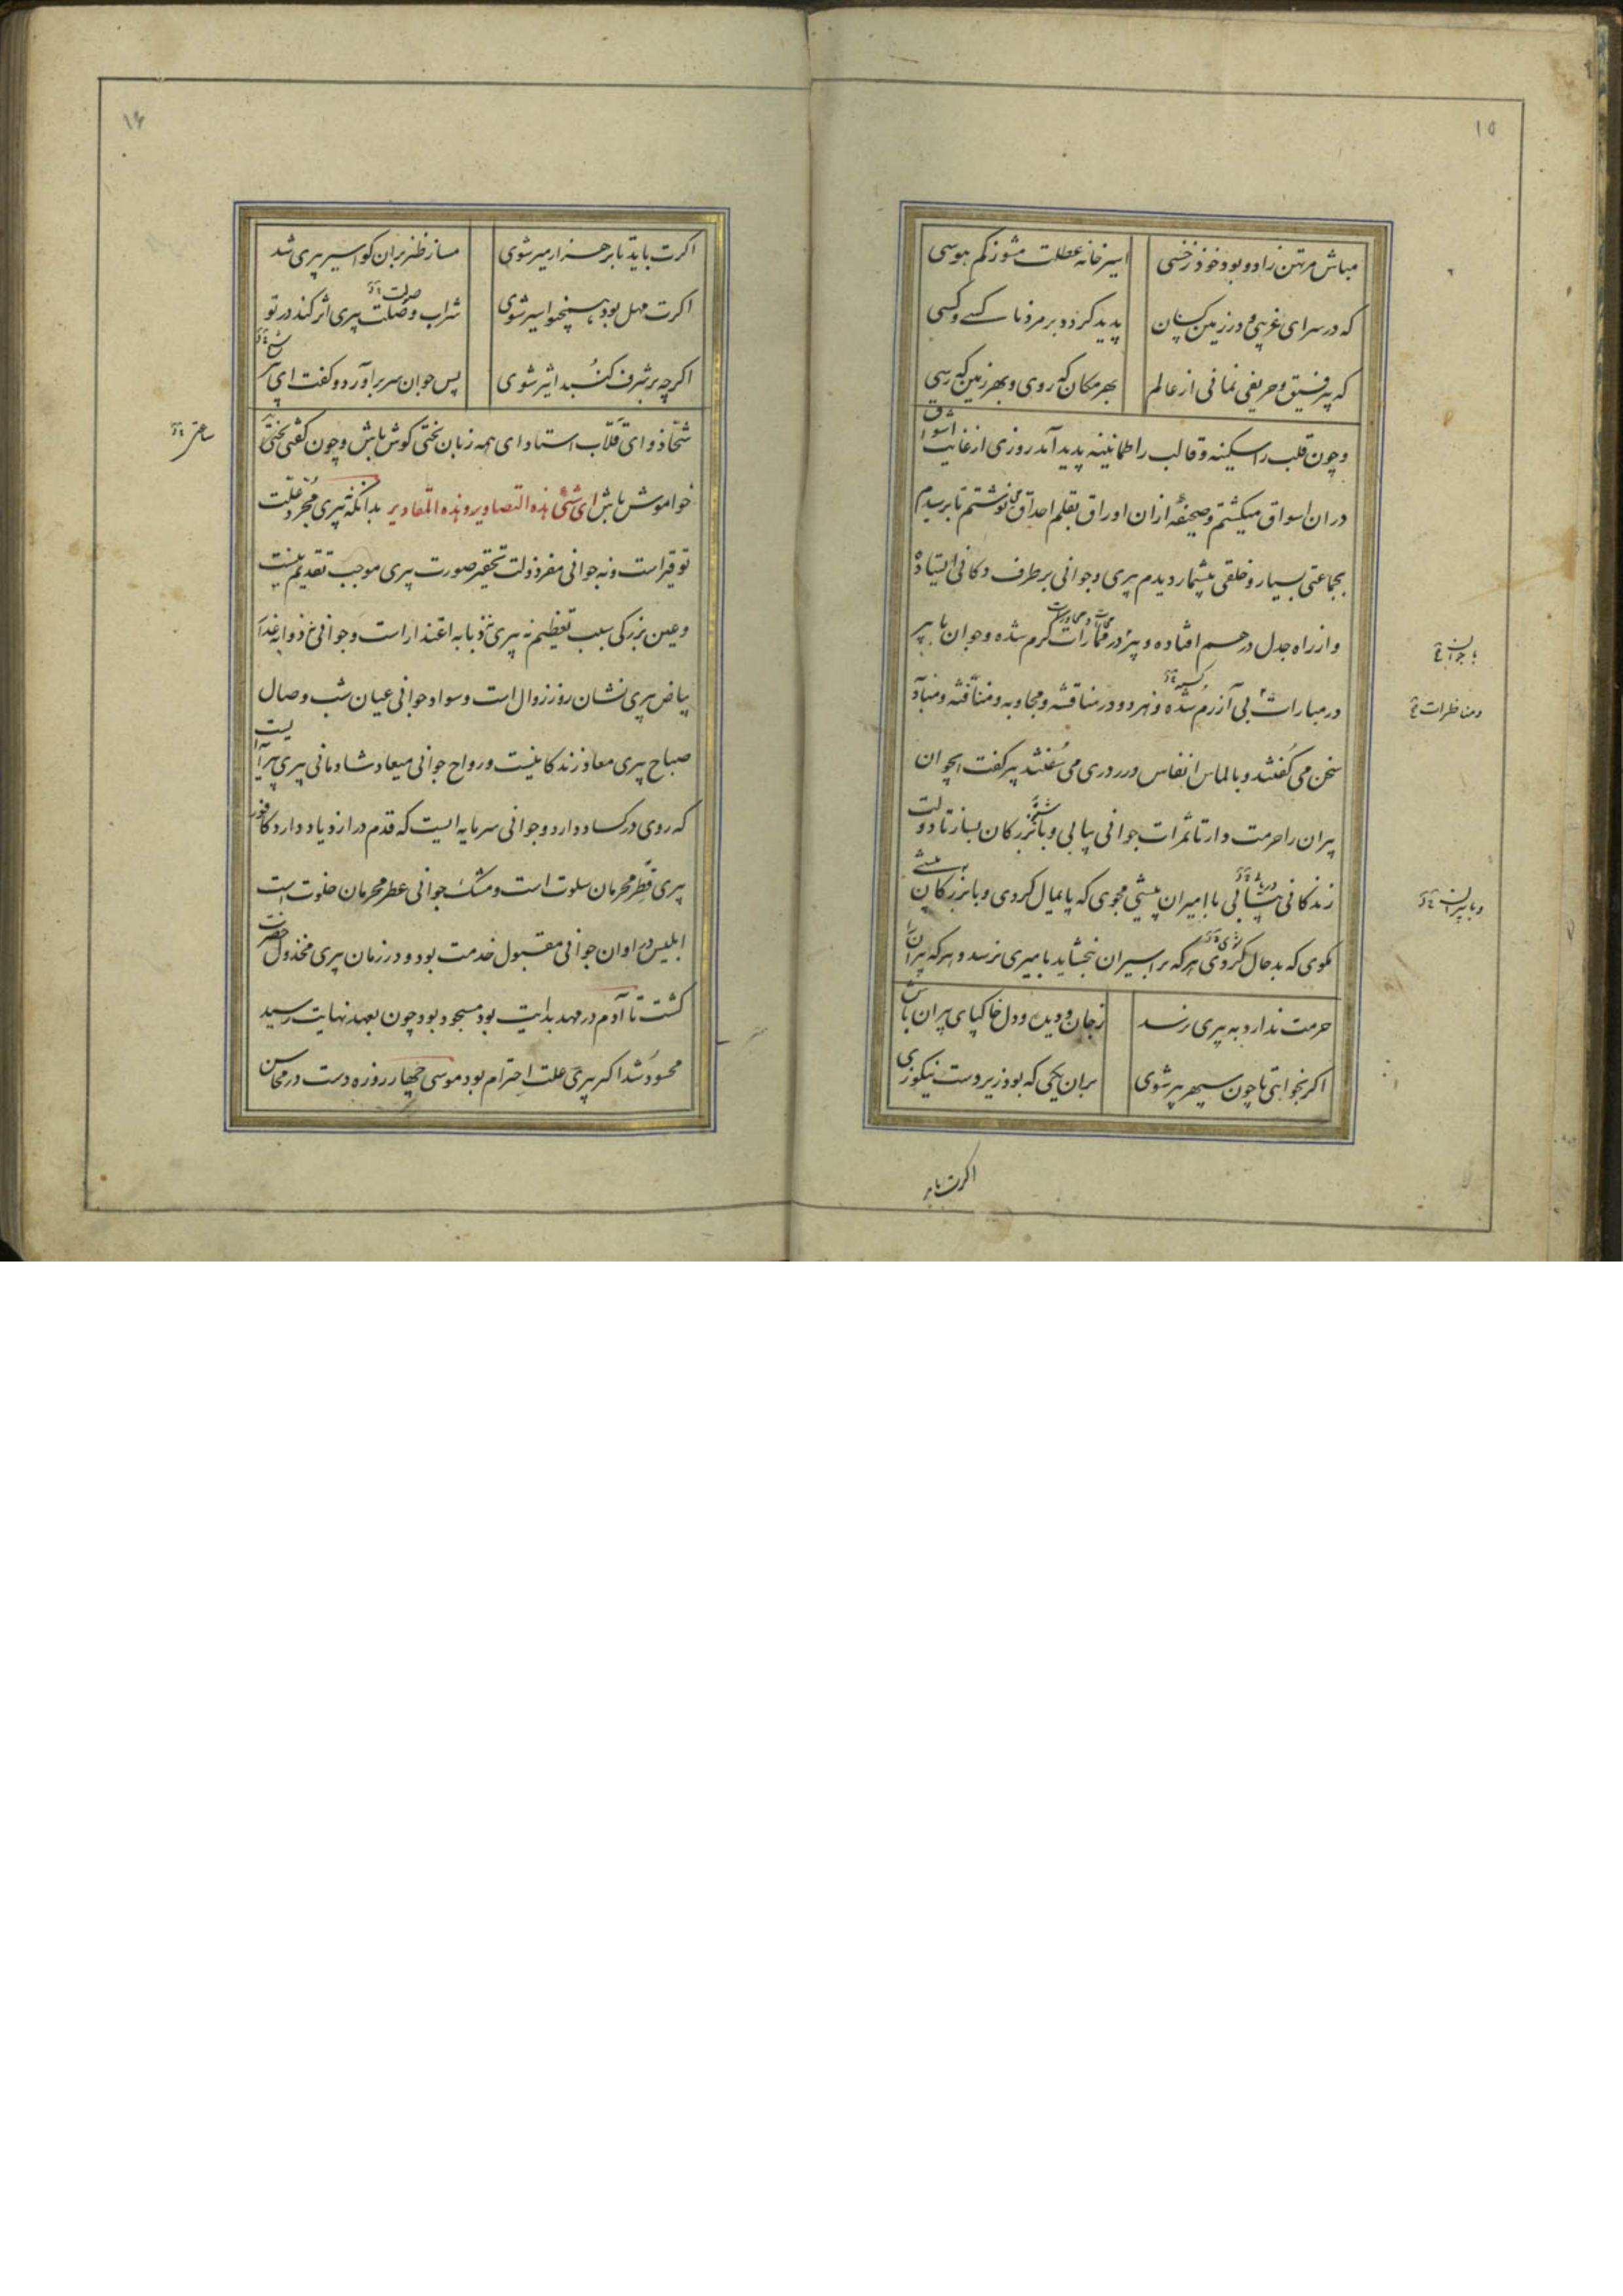 ۱۵
مباش مرتهن زاد و بود خود ز خسی اسیر خانه عطلت مشو ز کم هوسی
که در سرای غریبی و در زمین کسان پدید کردد بر مرد ناکسی و کسی
که بی رفیق و حریفی نمانی از عالم بهر مکان که روی و بهر زمین که رسی
و چون قلب را سکینه و قالب را طمانینه پدید آمد روزی از غایت اشواق
در ان اسواق میکشتم و صحیفهٔ از ان اوراق بقلم احداق می نوشتم تا برسیدم
بجماعتی بسیار و خلقی بیشمار دیدم پیری و جوانی بر طرف دکانی ایستاده
و از راه جدل درهم افتاده و پیر در ممارات کرم شده و جوان با پیر
محاورت
با جوان
در مبارات بی آزرم شده و هر دو در مناقشه و مجاوبه و منافثه و
و مناظرات
سخن می کفتند و بالماس انفاس در دری می سفتند پیر کفت ایجوان
پیران را حرمت دار تا ثمرات جوانی یابی و با بزرکان بساز تا دولت
زندکانی یابی با امیران پیشی مجوی که پایمال کردی و با بزرکان
و با پیران
مکوی که بد حال کردی هر که بر اسیران نبخشاید بامیری نرسد و هر که پیران را
حرمت ندارد به پیری نرسد ز جان و دیده و دل خاکپای پیران باش
اکر بخواهی تا چون سپهر پیر شوی بران یکی که بود زیر دست نیکو زی
اکرت باید
۱۶
اکرت باید تا بر هزار میر شوی مساز طنز بران کو اسیر پیری شد
اکرت مهل بود اسیر شوی شراب وصلت پیری اثر کند در تو
صولت
اکرچه بر شرف کنبد اثیر شوی پس جوان سر برآورد و کفت ای پیر
شحّاذ و ای قلّاب استاد ای همه زبان لختی کوش باش و چون کفتی لختی
خواموش باش ای شیء هذه التصاویر و هذه التقادیر بدانکه پیری مجرد علّت
توقیر است و نه جوانی مفرد ذلت تحقیر صورت پیری موجب تقدیم نیست
و عین بزرکی سبب تعظیم نه پیری نه اعتذار است و جوانی
بیاض پیری نشان روز زوال است و سواد جوانی عیان شب وصال
صباح پیری معاد زندکانیست و رواح جوانی میعاد شادمانی پیری پیرایه ایست
که روی در کساد دارد و جوانی سرمایه ایست که قدم در ازدیاد دارد کافور
پیری قطر محرمان سلوت است و مشک جوانی عطر محرمان خلوت است
ابلیس در اوان جوانی مقبول خدمت بود و در زمان پیری مخذول حضرت
کشت تا آدم در مهد بدایت بود مسجود بود چون بعهد نهایت رسید
محسود شد اکر پیری علت احترام بود موسی چهار روزه دست در محاسن